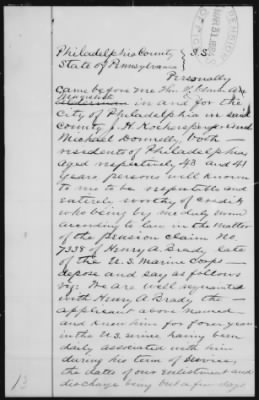 PENSION OFFICE
MAR 31 
Philadelphia County } S.S.
State of Pennsylvania
Personally
came before me Wm P.
Magistrate
Alderman in and for the
City of Philadelphia in said
County J. H. and
Michael Donnelly both —
residents of Philadelphia
aged respectively 43 and 41
years persons well known
to me to be reputable and
entirely worthy of credit
who being by me duly sworn
according to law in the matter
of the pension claim No.
7338 of Henry A. Brady late
of the U.S. Marine Corps —
depose and say as follows
viz: We are well acquainted
with Henry A Brady the —
applicant above named
and know him for four years
in the U.S. service having been
daily associated with him
during his term of service,
the dates of our enlistment and
discharge being but a few days
13